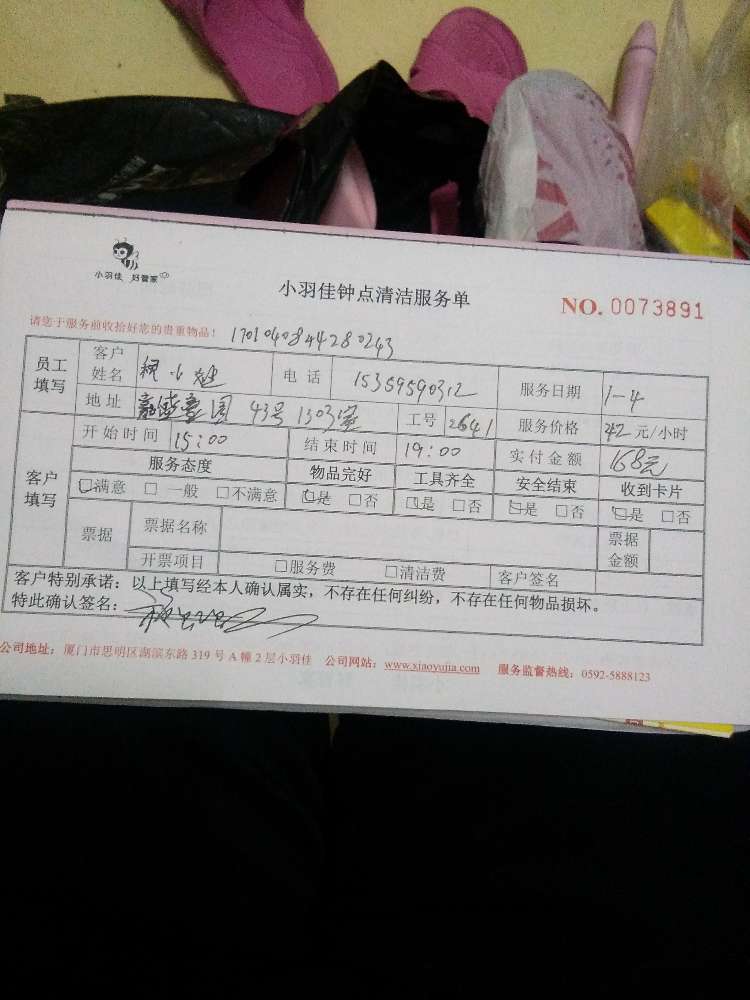 小羽佳 好管家
小羽佳钟点清洁服务单
NO. 0073891
请您于服务前收拾好您的贵重物品!
1701040844280243
员工填写 客户姓名 小姐 电话 15359590312 服务日期 1-4
地址 园 43号 1303室 工号 2641 服务价格 42元/小时
客户填写 开始时间 15:00 结束时间 19:00 实付金额 168元
服务态度 物品完好 工具齐全 安全结束 收到卡片
☑满意 □一般 □不满意 ☑是 □否 ☑是 □否 ☑是 □否 ☑是 □否
票据 票据名称 票据金额
开票项目 □服务费 □清洁费 客户签名
客户特别承诺:以上填写经本人确认属实,不存在任何纠纷,不存在任何物品损坏。
特此确认签名:
公司地址:厦门市思明区湖滨东路 319 号 A 幢 2 层小羽佳 公司网站:www.xiaoyujia.com 服务监督热线:0592-5888123